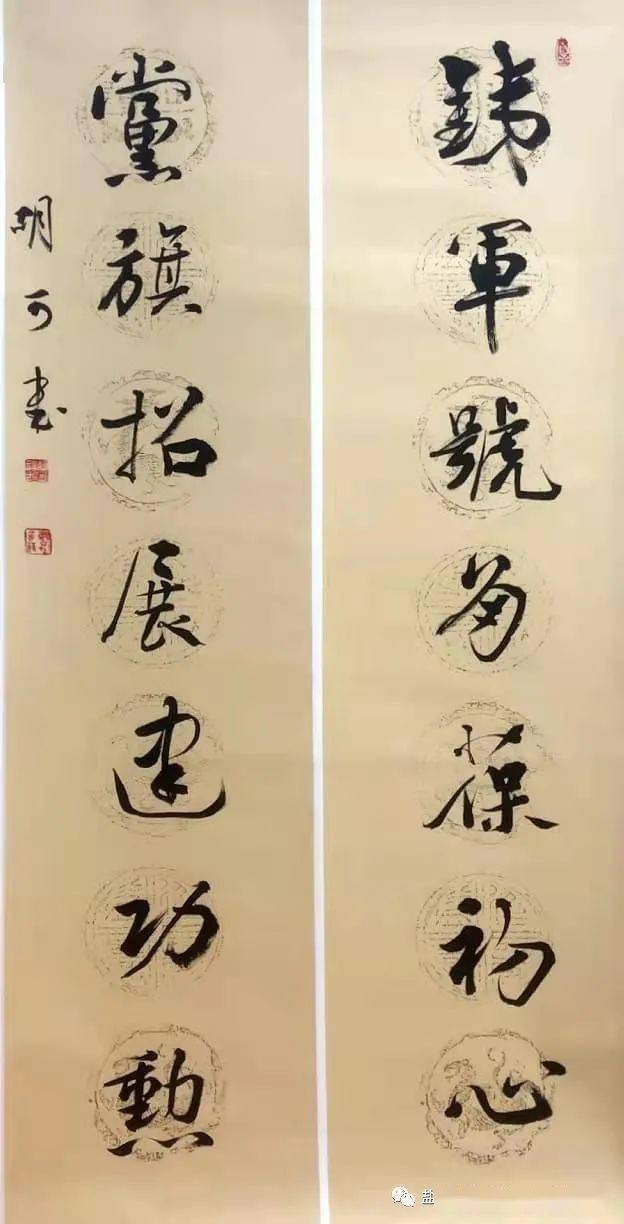 銕軍號葆初心
黨旗招展建功勳
胡可書
盐